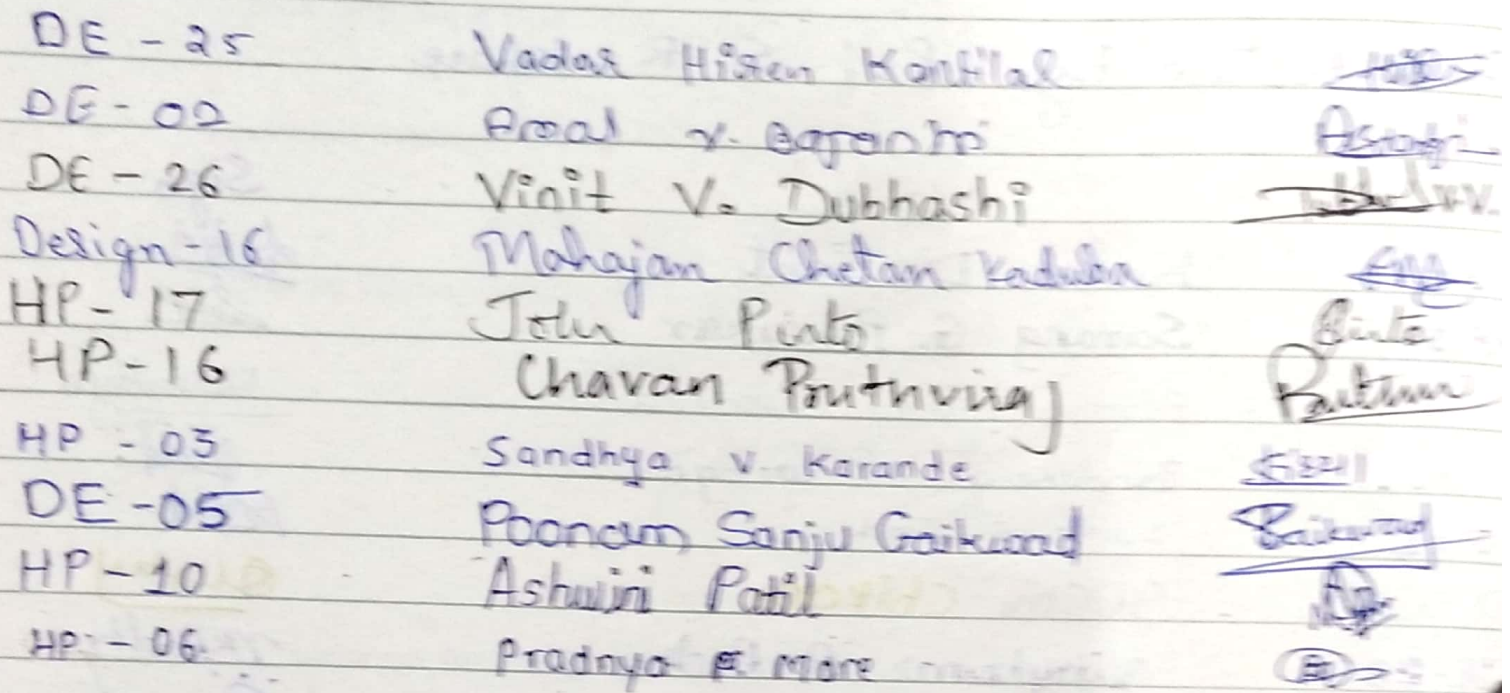 DE - 25 Vadar Hiren Kantilal
DE - 02 Amal v.
DE - 26 Vinit V. Dubhashi
Design - 16 Mahajan Chetan Kaduba
HP - 17 John Pinto Pinto
HP - 16 Chavan Pruthviraj
HP - 03 Sandhya v Karande
DE - 05 Poonam Sanju Gaikwad Gaikwad
HP - 10 Ashwini Patil
HP - 06 Pradnya More